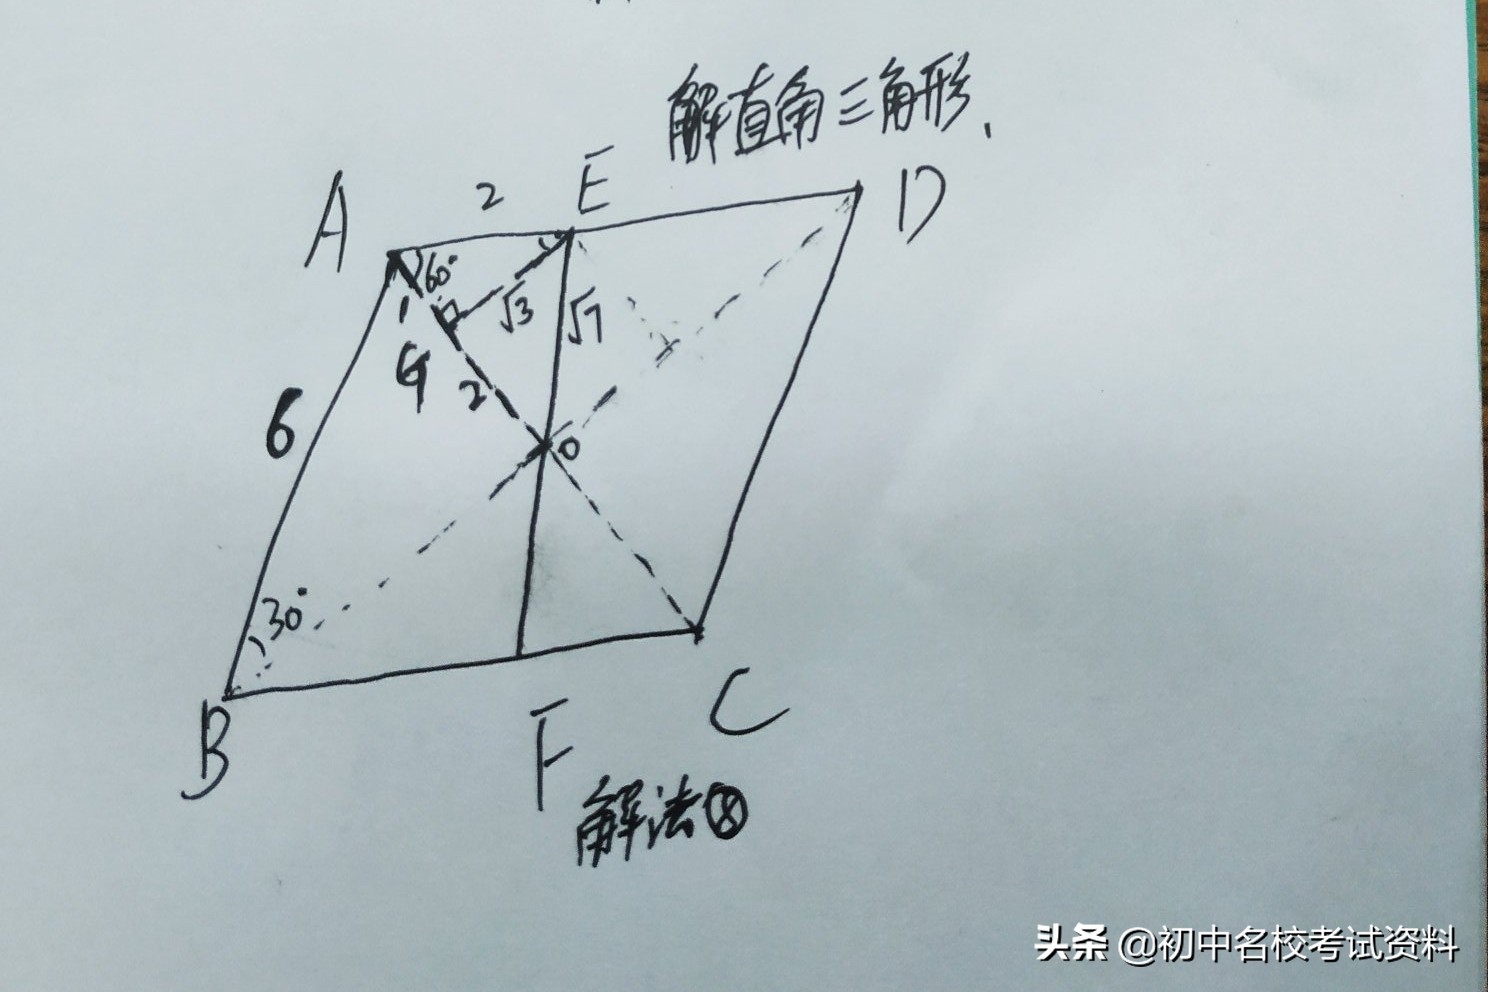 解直角三角形、
E
2
D
A
60°
√3
√7
1
G
2
6
O
30°
C
B
F
解法⑧
头条 @初中名校考试资料